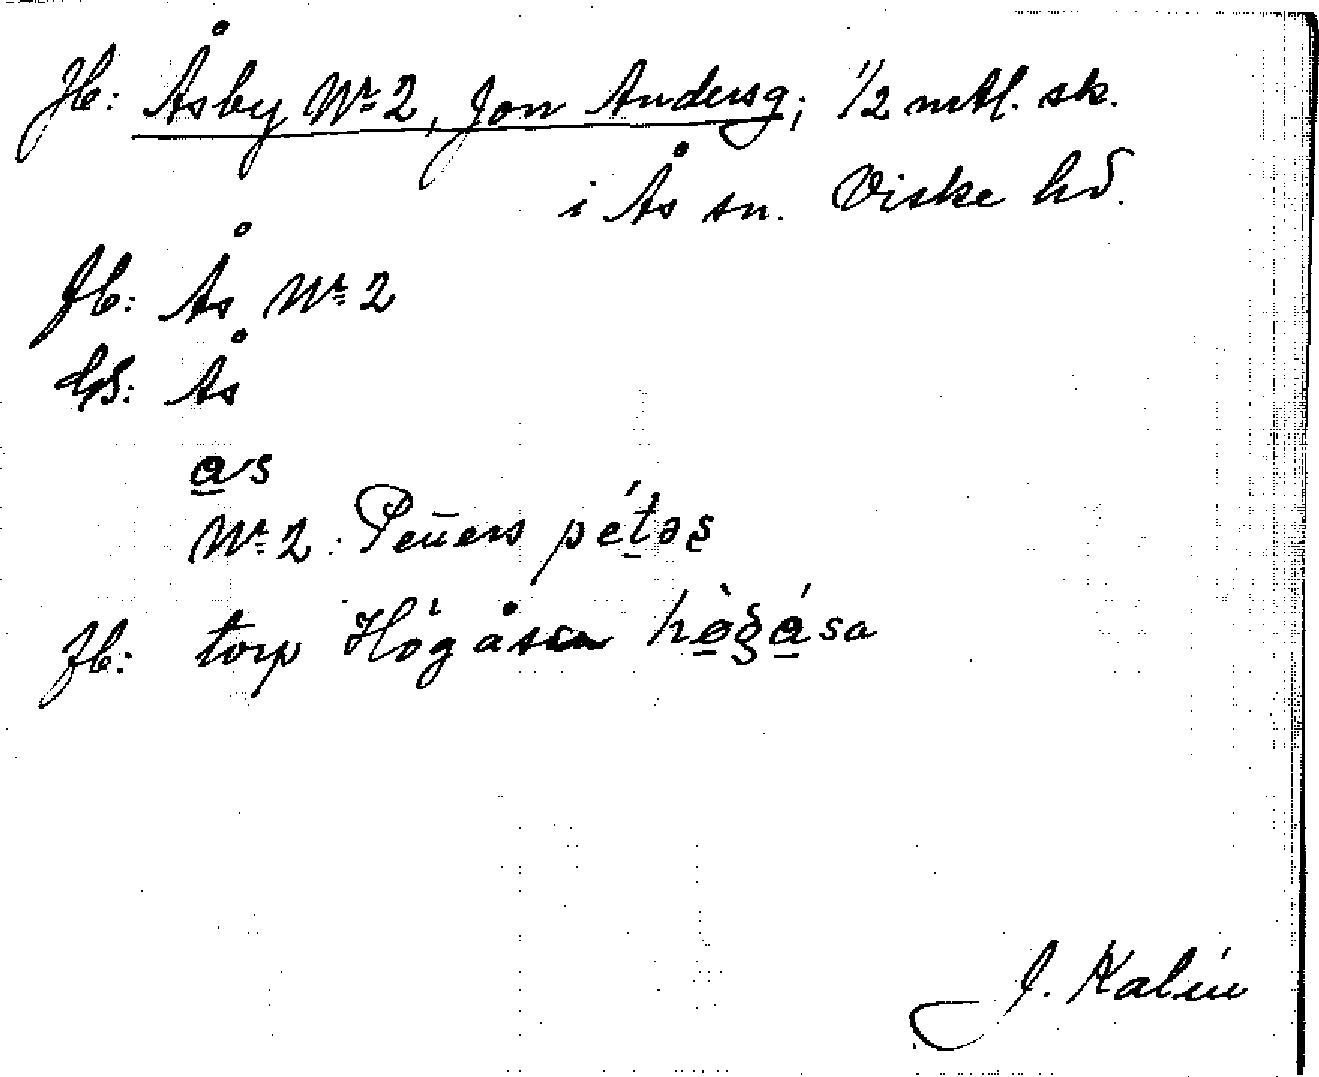 Jb: Åsby Nr 2, Jon Andersg; 1/2 mtl. sk.
i Ås sn. Viske hd.
Jb: Ås Nr 2
GS: Ås
as
Nr 2: Peters pétəs
Jb: torp Högåsen hö̀gása
J. Kalén